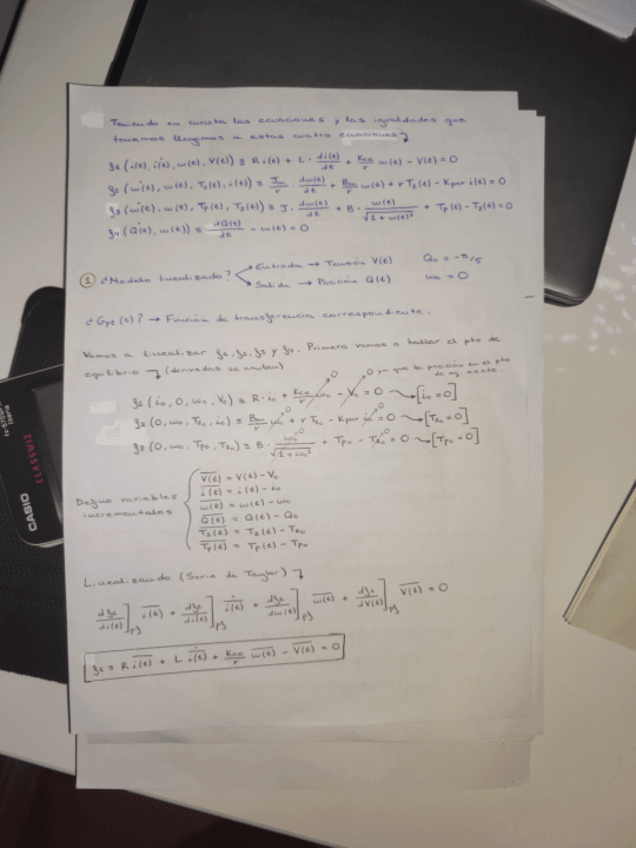 Teniendo en cuenta las ecuaciones y las igualdades que
tenemos llegamos a estas cuatro ecuaciones
g1 (i(t), i̇(t), w(t), V(t)) ≡ R i(t) + L · di(t)/dt + Kce/r w(t) - V(t) = 0
g2 (ẇ(t), w(t), T2(t), i(t)) ≡ Jm/r · dw(t)/dt + Bm/r w(t) + r T2(t) - Kpar i(t) = 0
g3 (ẇ(t), w(t), Tp(t), T2(t)) ≡ J · dw(t)/dt + B · w(t)/√(1 + w(t)²) + Tp(t) - T2(t) = 0
g4 (Q̇(t), w(t)) ≡ dQ(t)/dt - w(t) = 0
① ¿Modelo linealizado? Entrada → Tensión V(t) Q0 = -π/5
Salida → Posición Q(t) w0 = 0
¿Gyz(s)? → Función de transferencia correspondiente.
Vamos a linealizar g1, g2, g3 y g4. Primero vamos a hallar el pto de
equilibrio (derivadas se anulan)
0 0 ya que la posición en el pto
de eq. es cte.
g1 (i0, 0, w0, V0) ≡ R · i0 + Kce/r w0 - V0 = 0 → [i0 = 0]
g2 (0, w0, T20, i0) ≡ Bm/r w0 + r T20 - Kpar i0 = 0 → [T20 = 0]
g3 (0, w0, Tp0, T20) ≡ B · w0/√(1 + w0²) + Tp0 - T20 = 0 → [Tp0 = 0]
Defino variables
incrementales
V(t) = V(t) - V0
i(t) = i(t) - i0
w(t) = w(t) - w0
Q(t) = Q(t) - Q0
T2(t) = T2(t) - T20
Tp(t) = Tp(t) - Tp0
Linealizando (Serie de Taylor)
dg1/di(t)]pf i(t) + dg1/di(t)]pf i̇(t) + dg1/dw(t)]pf w(t) + dg1/dV(t)]pf V(t) = 0
g1 ≡ R i(t) + L i̇(t) + Kce/r w(t) - V(t) = 0
CASIO
CLASSWIZ